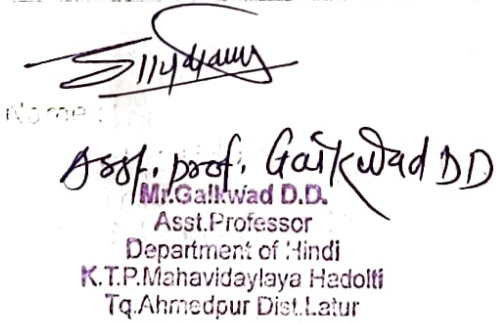 Name :
Asst. prof. Gaikwad DD
Mr.Gaikwad D.D.
Asst.Professor
Department of Hindi
K.T.P.Mahavidaylaya Hadolti
Tq.Ahmedpur Dist.Latur